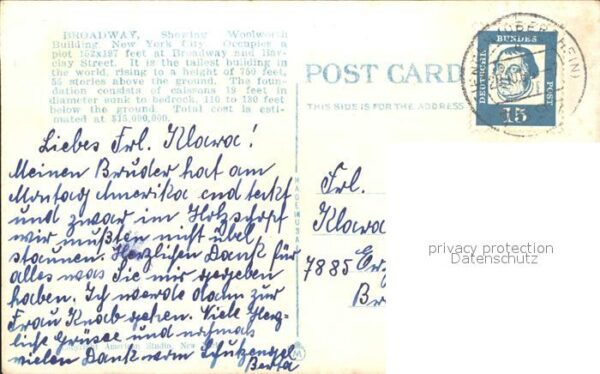 BROADWAY, Showing Woolworth
Building, New York City. Occupies a
plot 152x197 feet at Broadway and Bar-
clay Street. It is the tallest building in
the world, rising to a height of 750 feet,
55 stories above the ground. The foun-
dation consists of caissons 19 feet in
diameter sunk to bedrock, 110 to 130 feet
below the ground. Total cost is esti-
mated at $15,000,000.
POST CARD
THIS SIDE IS FOR THE ADDRESS
DEUTSCHE
BUNDES
POST
15
Liebes Frl. Klara!
Meinen Bruder hat am
Montag Amerika endteckt
und zwar im Holzschopf
wir mußten nicht übel
staunen. Herzlichen Dank für
alles was Sie mir gegeben
haben. Ich werde dann zur
Frau Knab gehen. Viele Herz-
liche Grüsse und nochmals
vielen Dank vom Schutzengel
Berta
American Studio, New
MADE IN USA
Frl.
Klara
7885
Br
privacy protection
Datenschutz